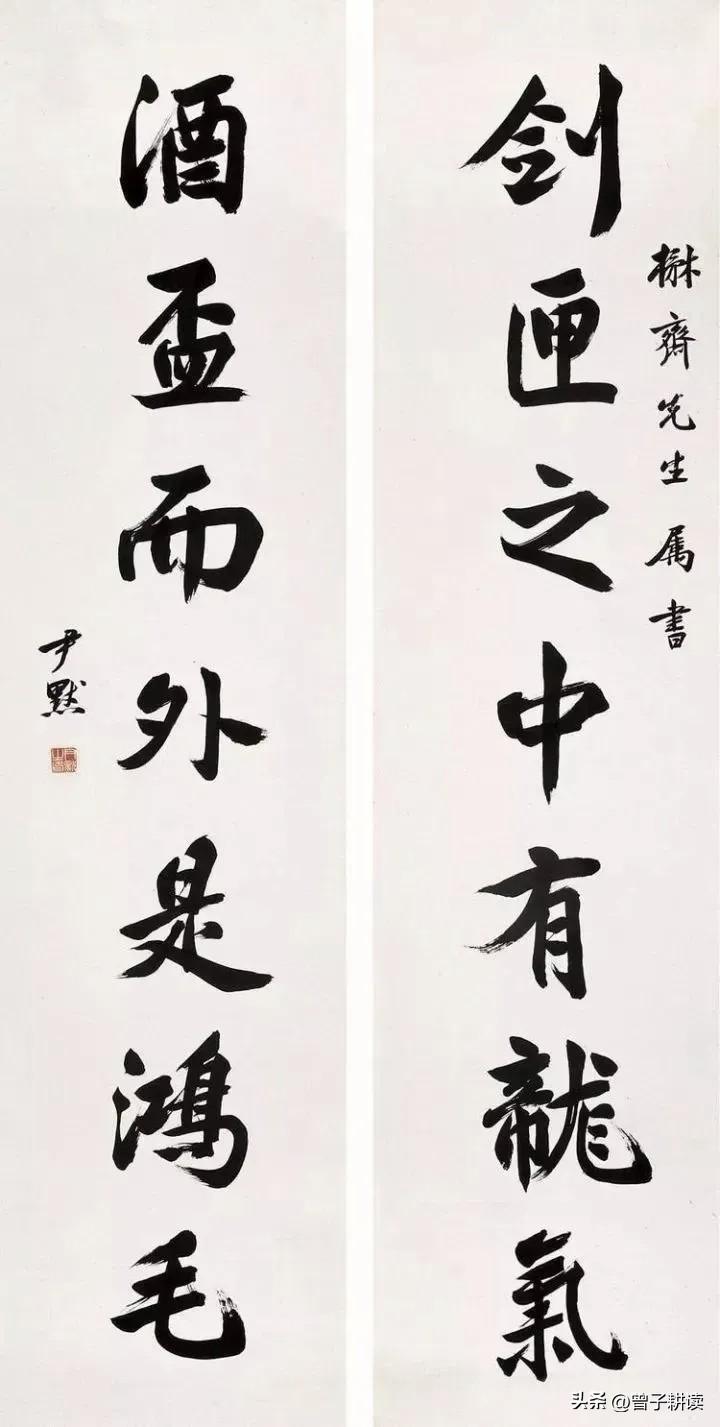 齊先生属書
剑匣之中有龍氣
酒盃而外是鴻毛
尹默
头条@曾子耕读